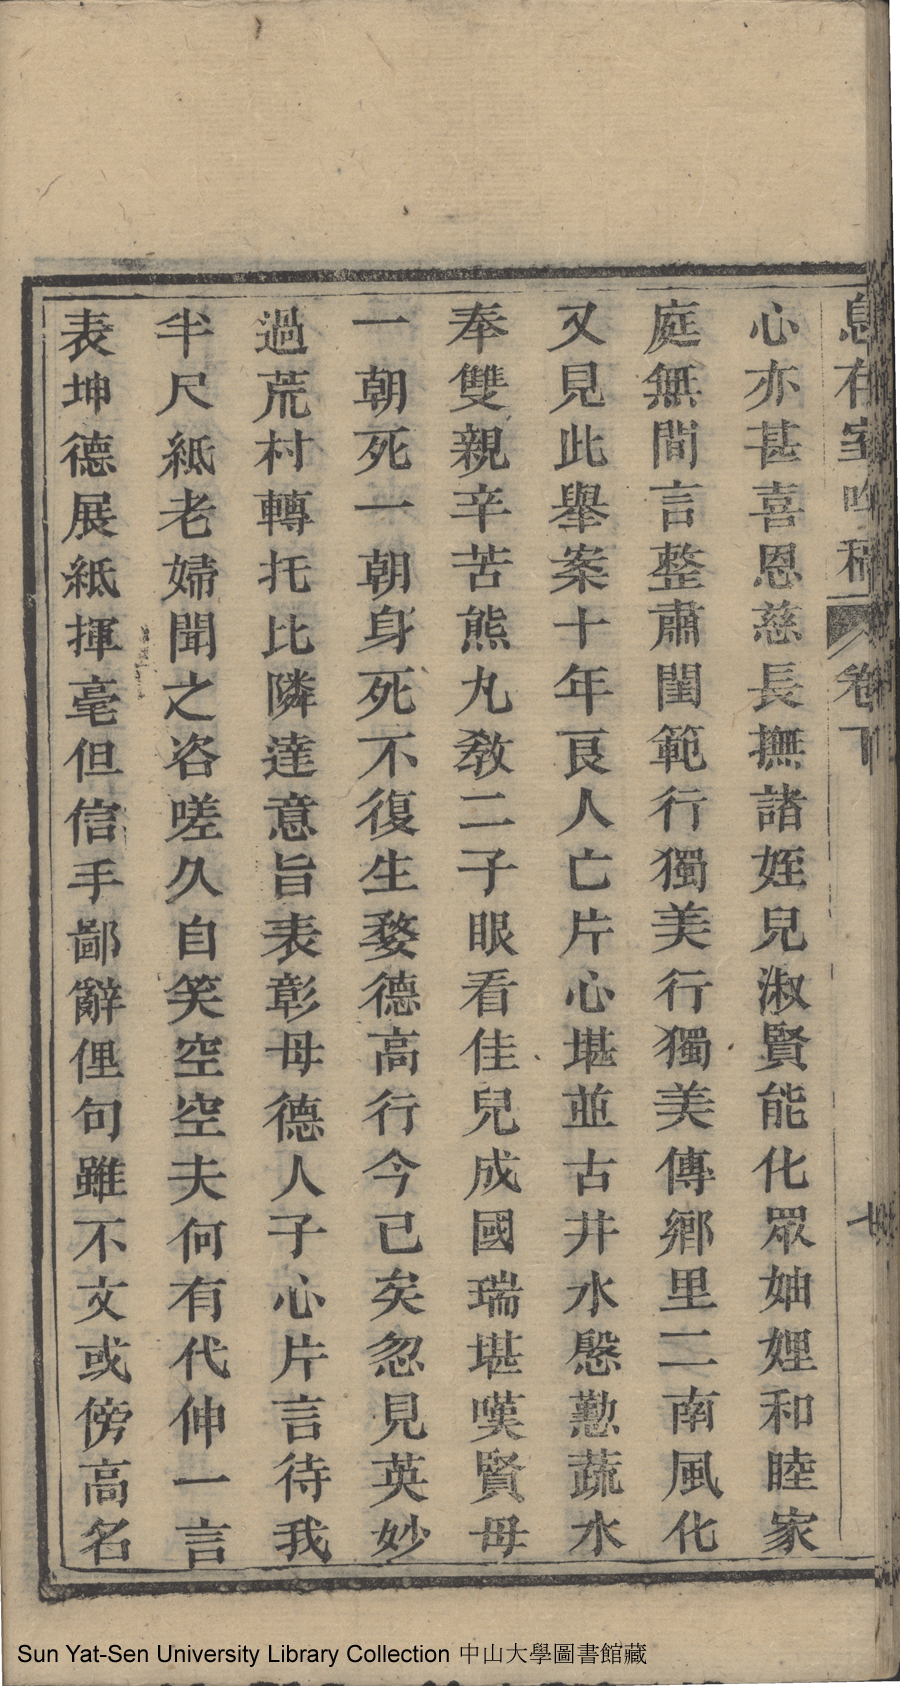 息存室吟稿 卷下 七
心亦甚喜恩慈長撫諸姪兒淑賢能化眾妯娌和睦家
庭無間言整肅閨範行獨美行獨美傳鄉里二南風化
又見此舉案十年良人亡片心堪並古井水慇懃蔬水
奉雙親辛苦熊丸教二子眼看佳兒成國瑞堪嘆賢母
一朝死一朝身死不復生婺德高行今已矣忽見英妙
過荒村轉托比隣達意旨表彰母德人子心片言待我
半尺紙老婦聞之咨嗟久自笑空空夫何有代伸一言
表坤德展紙揮毫但信手鄙辭俚句雖不文或傍高名
Sun Yat-Sen University Library Collection 中山大學圖書館藏